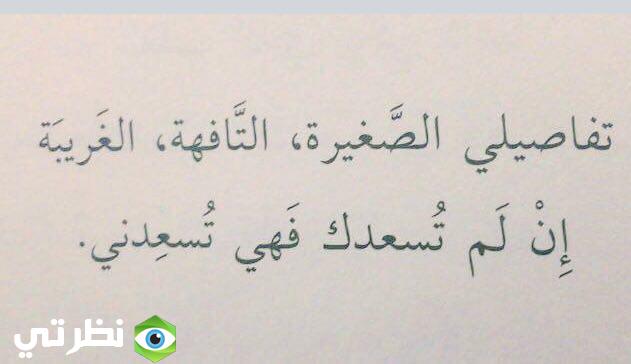 تفاصيلي الصَّغيرة، التَّافهة، الغَريبَة
إِنْ لَم تُسعدك فَهي تُسعِدني.
نظرتي